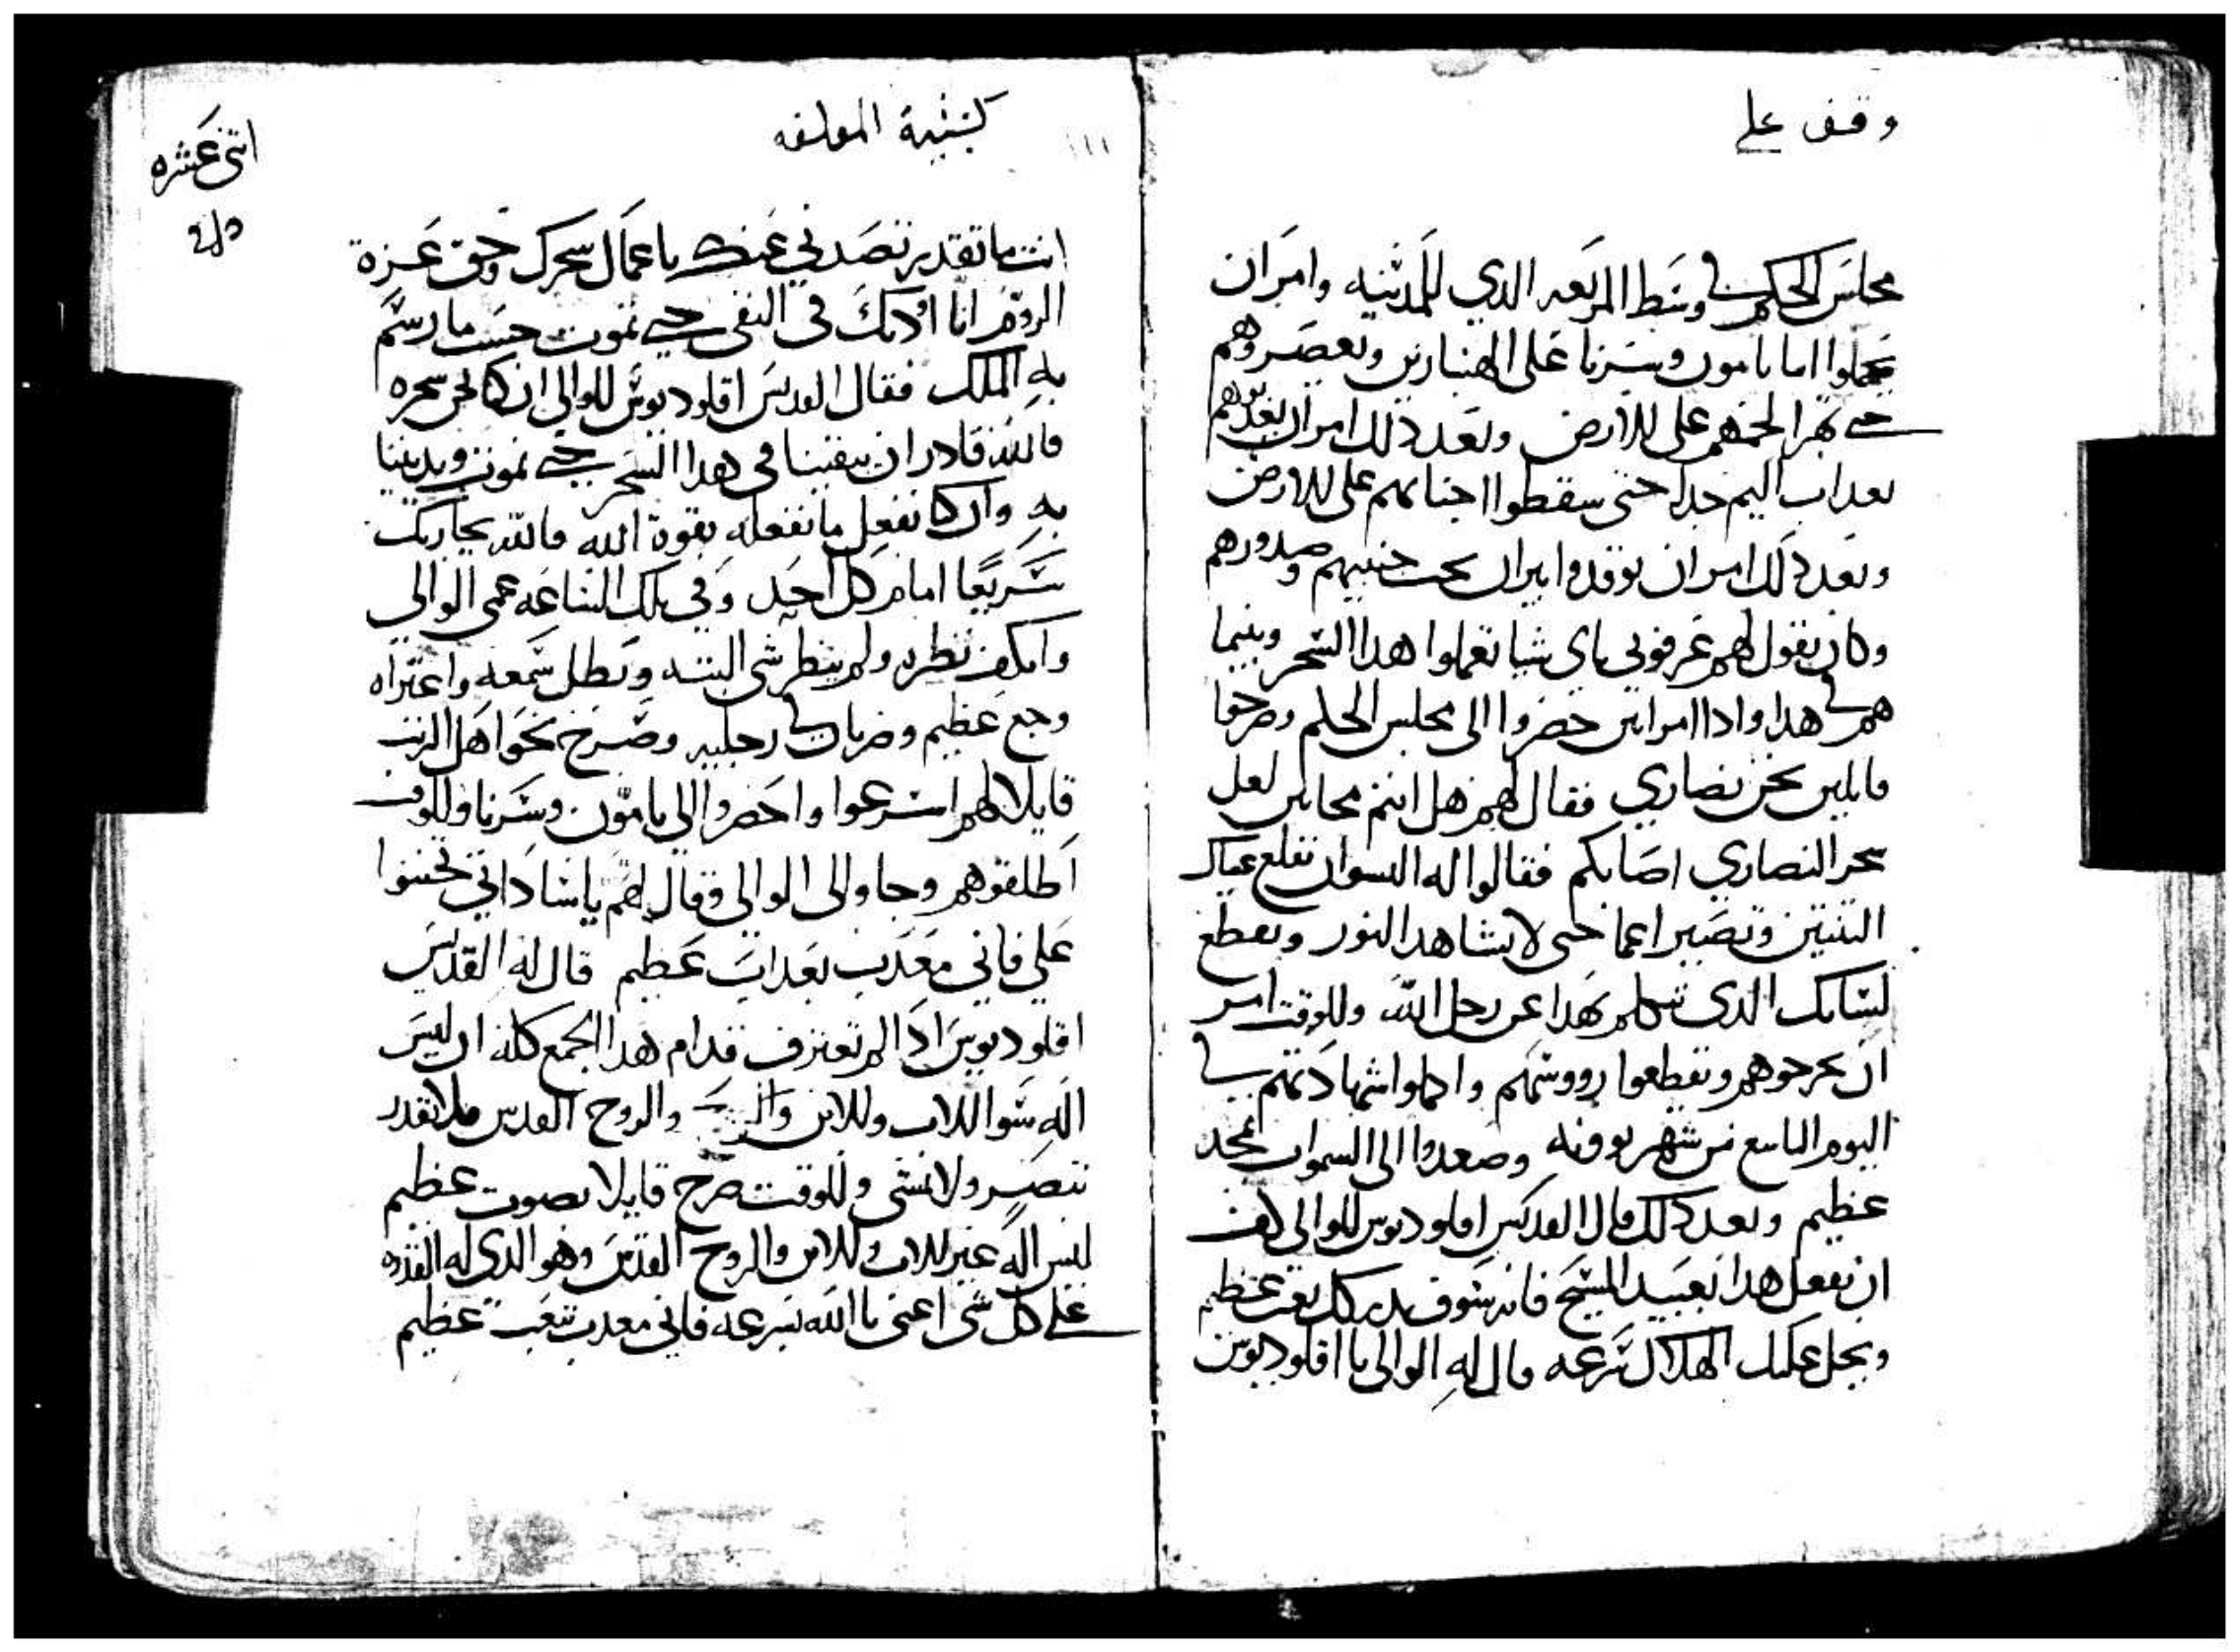 وقف على
مجلس الحكم في وسط المربعه الذي للمدينه وامر ان
يحملوا ابا بامون وسرنا على الهنبازين ويعصروهم
حتى تهرا لحمهم على الارض وبعد ذلك امر ان يعذبوهم
بعداب اليم جدا حتى سقطوا اجنابهم على الارض
وبعد ذلك امر ان يوقدوا نيران تحت جنبيهم وصدورهم
وكان يقول لهم عرفوني باي شيا تعملوا هدا السحر وبينما
هم في هدا وادا امراتين حضروا الى مجلس الحكم وصرخوا
قايلين نحن نصاري فقال لهم هل انتم مجانين لعل
سحر النصاري اصابكم فقالوا له النسوان تقلع عيناك
التنتين وتصير اعما حتى لا تشاهد النور ويقطع
لسانك الدي تتكلم بهدا عن رجل الله وللوقت امر
ان يخرجوهم وتقطعوا رووسهم واكملوا شهادتهم في
اليوم التاسع من شهر بوونه وصعدوا الى السموات بمجد
عظيم وبعد ذلك قال القديس اقلوديوس للوالي كيف
ان تفعل هدا بعبيد المسيح فانه سوف يدركك تعب عظيم
ويحل عليك الهلاك بسرعه قال له الوالي يا اقلوديوس
كنيسة المعلقه
اتنى عشره
انت ما تقدير تصدني عنك باعمال سحرك وحق عزة
الروم انا اوديك في النفي حتى تموت حسب ما رسم
به الملك فقال القديس اقلوديوس للوالي ان كنا نحن سحره
فالله قادر ان يبقينا في هدا السحر حتى نموت ويديننا
به وان كنا نفعل ما نفعله بقوة الله فالله يجازيك
سريعا امام كل احد وفي تلك الساعه عمى الوالي
وانكف نظره ولم ينظر شي البته وبطل سمعه واعتراه
وجع عظيم وضربات في رجليه وصرخ نحو اهل الريف
قايلا لهم اسرعوا واحضروا لي بامون وسرنا وللوقت
اطلقوهم وجاو الى الوالي وقال لهم يا ساداتي تحننوا
علي فاني معدب بعداب عظيم قال له القديس
اقلوديوس ادا لم تعترف قدام هدا الجمع كله ان ليس
اله سوا الاب والابن والروح القدس فلا تقدر
تنصر ولا تمشي وللوقت صرخ قايلا بصوت عظيم
ليس اله غير الاب والابن والروح القدس وهو الدي له القدره
على كل شي اعني يا الله بسرعه فاني معدب بتعب عظيم